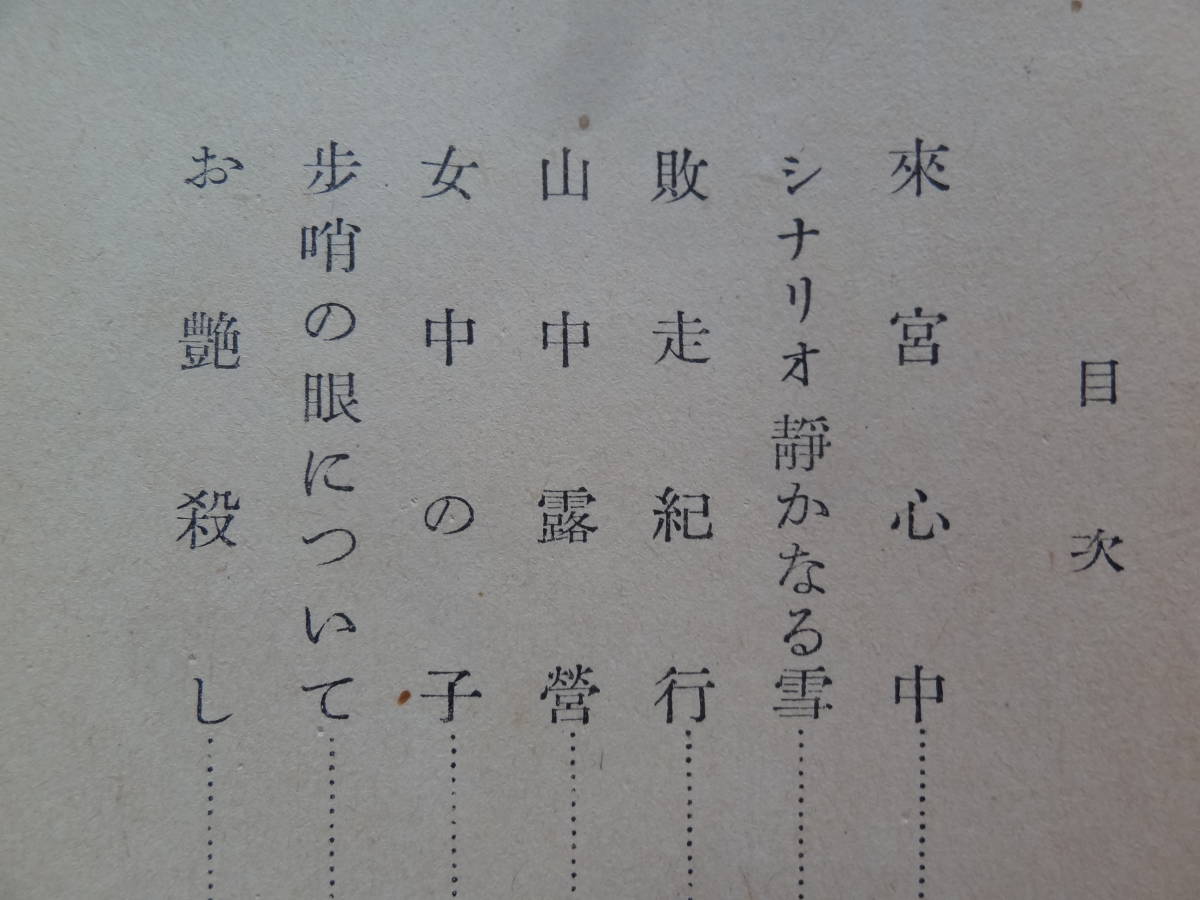 目次
來宮心中
シナリオ靜かなる雪
敗走紀行
山中露營
女中の子
步哨の眼について
お艶殺し